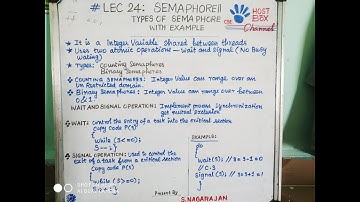 # LEC 24: SEMAPHORE||
TYPES OF SEMAPHORE
WITH EXAMPLE
CSE HOST BBX
Channel
* It is a Integer Variable shared between threads
* Uses two atomic operations - wait and signal (No Busy
Waiting)
* Types: Counting Semaphores
Binary Semaphores
* COUNTING SEMAPHORES: Integer Value can range over an
Un Restricted domain.
* Binary Semaphores: Integer Value can range over between
0 & 1
WAIT AND SIGNAL OPERATION: Implement process Synchronization
get mutual exclusion
* WAIT: control the entry of a task into the critical section
Copy Code P(S)
{
while (S<=0);
S--; }
* SIGNAL OPERATION: used to control the
exit of a task from a critical section
Copy code P(S)
{
while (S>=0);
EXAMPLE:
do
{
wait(S); // S=S-1=0
// C.S
signal(S); // S=S+1=1
}
Present By
S. NAGARAJAN